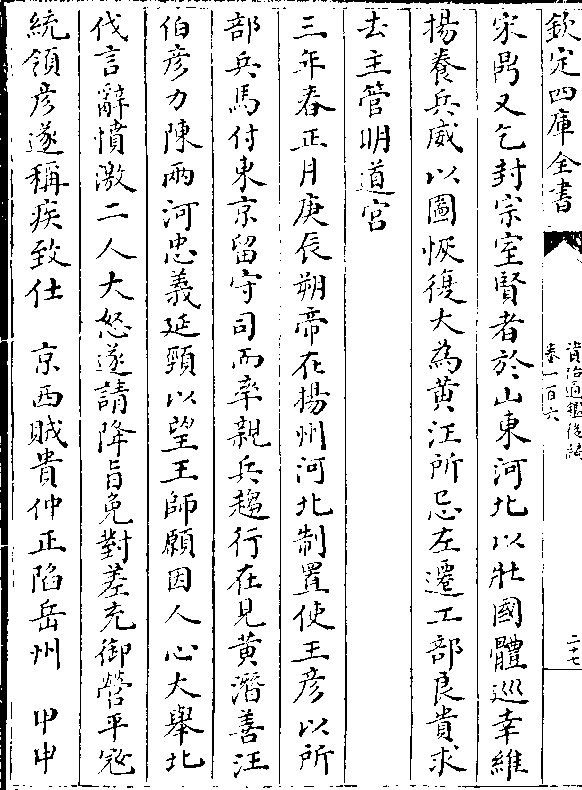 欽定四庫全書
資治通鑑後編
卷一百六
二十七
宋鼎又乞封宗室賢者於山東河北以壯國體巡幸維
揚養兵威以圖恢復大為黄汪所忌左遷工部良貴求
去主管明道宮
三年春正月庚辰朔帝在揚州河北制置使王彦以所
部兵馬付東京留守司而率親兵趨行在見黄潛善汪
伯彦力陳兩河忠義延頸以望王師願因人心大舉北
伐言辭憤激二人大怒遂請降旨免對差充御營平冦
統領彦遂稱疾致仕　京西賊貴仲正陷岳州　甲申